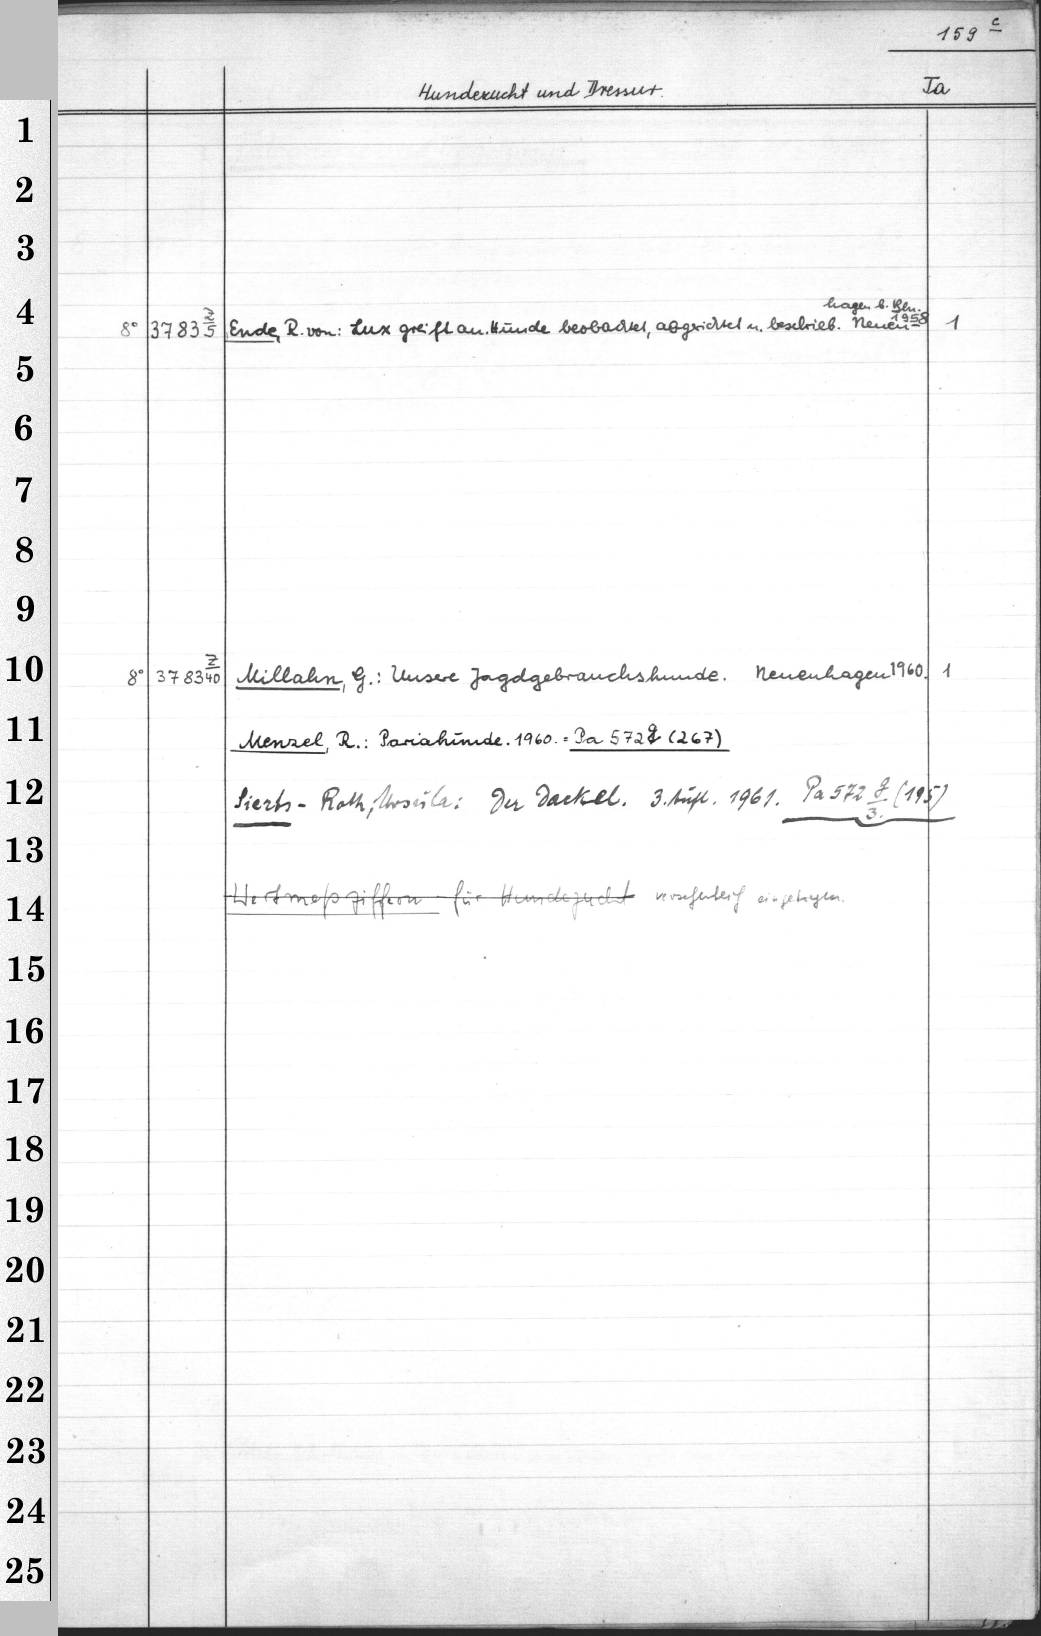 159 c
Hundezucht und Dressur. Ta
1
2
3
hagen b. Bln.
4 8° 37835 Z/5 Ende, R. von: Lux greift an. Hunde beobachtet, abgerichtet u. beschrieb. Neuen- 1958 1
5
6
7
8
9
10 8° 3783 Z/40 Millahn, G.: Unsere Jagdgebrauchshunde. Neuenhagen 1960. 1
11 Menzel, R.: Pariahunde. 1960. = Pa 572 g (267)
12 Sierts-Roth, Ursula: Der Dackel. 3. Aufl. 1961. Pa 572 g/3. (195)
13
14 Wertmeßziffern für Hundezucht versehentlich eingetragen.
15
16
17
18
19
20
21
22
23
24
25